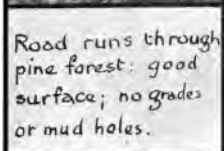 Road runs through
pine forest: good
surface; no grades
or mud holes.